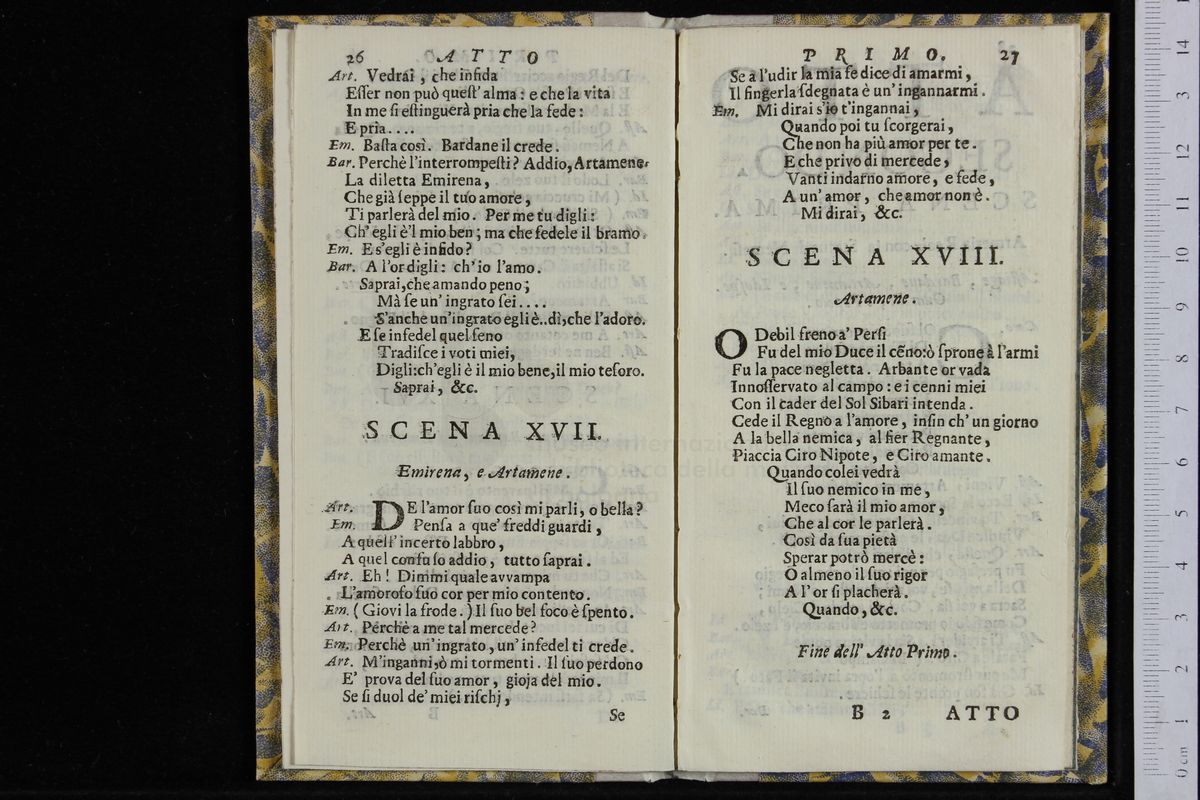 26 ATTO
Art. Vedrai, che infida
Eſſer non può queſt'alma: e che la vita
In me ſi eſtinguerà pria che la fede:
E pria....
Em. Baſta così. Bardane il crede.
Bar. Perchè l'interrompeſti? Addio, Artamene.
La diletta Emirena,
Che già ſeppe il tuo amore,
Ti parlerà del mio. Per me tu digli:
Ch' egli è'l mio ben; ma che fedele il bramo.
Em. E s'egli è infido?
Bar. A l'or digli: ch'io l'amo.
Saprai, che amando peno;
Mà ſe un' ingrato ſei....
S'anche un'ingrato egli è..dì, che l'adoro.
E ſe infedel quel ſeno
Tradiſce i voti miei,
Digli: ch'egli è il mio bene, il mio teſoro.
Saprai, &c.
SCENA XVII.
Emirena, e Artamene.
Art. DE l'amor ſuo così mi parli, o bella?
Em. Penſa a que' freddi guardi,
A quell' incerto labbro,
A quel confuſo addio, tutto ſaprai.
Art. Eh! Dimmi quale avvampa
L'amoroſo ſuo cor per mio contento.
Em. (Giovi la frode.) Il ſuo bel foco è ſpento.
Art. Perchè a me tal mercede?
Em. Perchè un'ingrato, un' infedel ti crede.
Art. M'inganni, ò mi tormenti. Il ſuo perdono
E' prova del ſuo amor, gioja del mio.
Se ſi duol de' miei riſchj,
Se
PRIMO. 27
Se a l'udir la mia fe dice di amarmi,
Il fingerla ſdegnata è un' ingannarmi.
Em. Mi dirai s'io t'ingannai,
Quando poi tu ſcorgerai,
Che non ha più amor per te.
E che privo di mercede,
Vanti indarno amore, e fede,
A un' amor, che amor non è.
Mi dirai, &c.
SCENA XVIII.
Artamene.
O Debil freno a' Perſi
Fu del mio Duce il cēno: ò ſprone à l'armi
Fu la pace negletta. Arbante or vada
Innoſſervato al campo: e i cenni miei
Con il cader del Sol Sibari intenda.
Cede il Regno a l'amore, inſin ch' un giorno
A la bella nemica, al fier Regnante,
Piaccia Ciro Nipote, e Ciro amante.
Quando colei vedrà
Il ſuo nemico in me,
Meco ſarà il mio amor,
Che al cor le parlerà.
Così da ſua pietà
Sperar potrò mercè:
O almeno il ſuo rigor
A l' or ſi placherà.
Quando, &c.
Fine dell' Atto Primo.
B 2 ATTO